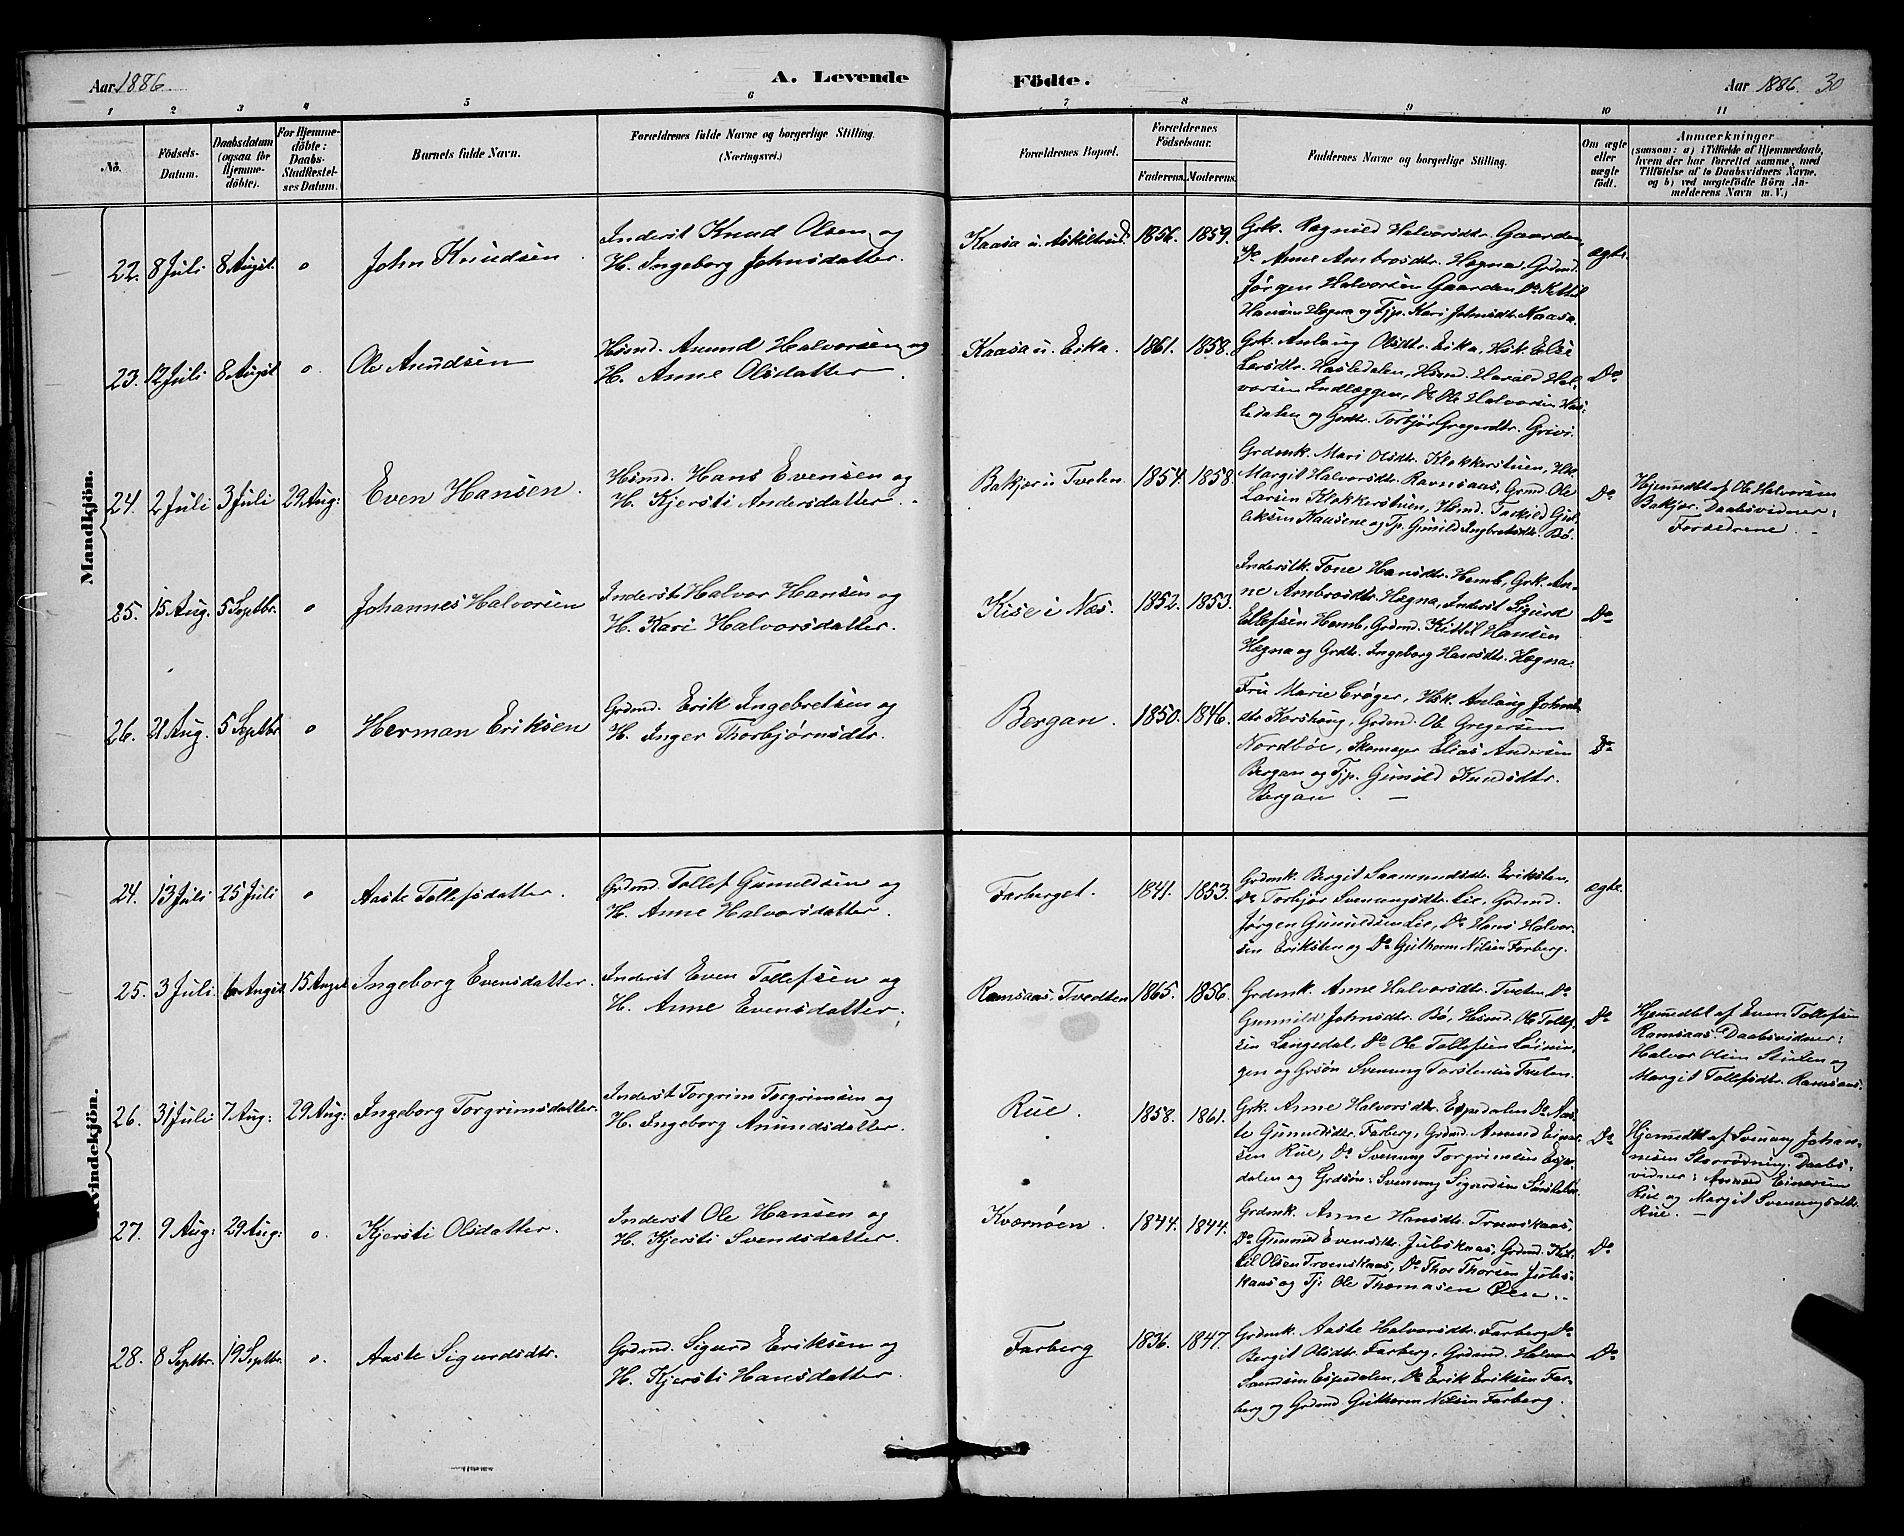 Aar 1886
A. Levende
Födte.
Aar 1886. 30
1 2 3 4 5 6 7 8 9 10 11
No.
Födsels-
Datum.
Daabsdatum
(ogsaa for
Hjemme-
döbte).
For Hjemme-
döbte:
Daabs-
Stadfæstel-
ses Datum.
Barnets fulde Navn.
Forældrenes fulde Navne og borgerlige Stilling.
(Næringsvei.)
Forældrenes Bopæl.
Forældrenes
Födselsaar.
Faderens. Moderens.
Faddernes Navne og borgerlige Stilling.
Om ægte
eller
uægte
født.
Anmærkninger
(saasom: a) i Tilfælde af Hjemmedaab,
hvem der har forrettet samme, med
Tilföielse af to Daabsvidners Navne,
og b) ved uægtefödte Börn An-
melderens Navn m. V.)
Mandkjön.
22. 8 Juli 8 August o John Knudsen
Inderst Knud Olsen og
H. Ingeborg Johnsdatter.
Kaasa u. Askiltrud. 1856. 1859.
Grk. Ragnild Halvorsdtr. Gaarden,
Do Anne Ambrosdtr. Hægna, Grdmd.
Jørgen Halvorsen Gaarden Do Kittil
Hansen Hægna og Tjp. Kari Johnsdtr. Kaasa.
ægte.
23. 12 Juli 8 August o Ole Anundsen
Husmd. Anund Halvorsen og
H. Anne Olsdatter.
Kaasa u. Eika. 1861. 1858.
Grk. Anlaug Olsdtr. Eika, Hsk. Else
Larsdtr. Hasledalen, Hsmd. Harald Hal-
vorsen Indlæggen, Do Ole Halvorsen Has-
ledalen og Grdtr. Torbjør Gregersdtr. Grivi.
Do
24. 2 Juli 3 Juli 29 Aug: Even Hansen.
Husmd. Hans Evensen og
H. Kjersti Andersdatter.
Bakjor u Tveten. 1854. 1858.
Grdmk. Mari Olsdtr. Klokkerstuen, Hsk.
Margit Halvorsdtr. Ravnsaas, Grmd Ole
Larsen Klokkerstuen, Hsmd. Torkild Gul-
leksen Kaasene og Tjp. Gunild Ingebretsdtr. Bö.
Do
Hjemmedbt af Ole Halvorsen
Bakjor. Daabsvidner:
Forældrene.
25. 15 Aug. 5 Septbr. o Johannes Halvorsen
Inderst Halvor Hansen og
H. Kari Halvorsdatter.
Kise i Næs. 1852. 1853.
Inderstk. Tone Hansdtr. Hemb, Grk. An-
ne Ambrosdtr. Hægna, Inderst Sigurd
Ellefsen Hemb, Grdmd. Kittil Hansen
Hægna og Grdtr. Ingeborg Hansdtr. Hægna.
Do
26. 21 Aug. 5 Septbr o Herman Eriksen
Grdmd. Erik Ingebretsen og
H. Inger Thorbjørnsdtr.
Bergan. 1850. 1846.
Fru Marie Crøger, Hsk. Anlaug Johns-
dtr Korshaug, Grdmd. Ole Gregersen
Nordböe, Skomager Elias Andersen
Bergan og Tjp. Gunild Knudsdtr.
Bergan.
Do
Kvindekjön.
24. 13 Juli 25 Juli o Aaste Tollefsdatter.
Grdmd. Tollef Gunuldsen og
H. Anne Halvorsdatter.
Farberget. 1841. 1853.
Grdmk. Bergit Saamundsdtr. Eriksten,
Do Torbjør Svenungsdtr. Lie, Grdmd.
Jørgen Gunuldsen Lie, Do Hans Halvor-
sen Eriksten og Do Guthorm Nilsen Farberg.
ægte.
25. 3 Juli. 6 August. 15 August Ingeborg Evensdatter.
Inderst Even Tollefsen og
H. Anne Evensdatter.
Ramsaas, Tvedten 1865. 1856.
Grdmk. Anne Halvorsdtr. Tveten Do
Gunnild Johnsdtr. Bö, Husmd. Ole Tollef-
sen Langedal, Do Ole Tollefsen
gen og Grsøn Svenung Torstensen Tveten.
Do
Hjemmedbt af Even Tollefsen
Ramsaas. Daabsvidner:
Halvor Olsen Stulen og
Margit Tollefsdtr. Ramsaas.
26. 31 Juli 7 Aug: 29 Aug: Ingeborg Torgrimsdatter.
Inderst Torgrim Torgrimsen og
H. Ingeborg Anundsdatter.
Rue. 1858. 1861.
Grk. Anne Halvorsdtr. Espedalen Do Aas-
te Gunuldsdtr. Farberg, Grdmd. Anund Einar-
sen Rue, Do Svenung Torgrimsen Espe-
dalen og Grdsøn: Svenung Sigurdsen
Do
Hjemmedbt af Svenung Johan-
nesen Storrødning. Daabs-
vidner: Anund Einarsen
Rue og Margit Svenungsdtr.
Rue.
27. 9 Aug: 29 Aug: o. Kjersti Olsdatter.
Inderst Ole Hansen og
H. Kjersti Svendsdatter.
Kvernøen. 1844. 1844.
Grdmk. Anne Hansdtr. Tromskaas,
Do Gunnild Evensdtr. Jubskaas, Grdmd. Kit-
til Olsen Tromskaas, Do Thor Thorsen Jubs-
kaas og Tj: Ole Thomasen Øien.
Do
28. 8 Septbr. 19 Septbr. o. Aaste Sigurdsdtr.
Grdmd. Sigurd Eriksen og
H. Kjersti Hansdatter.
Farberg 1836. 1847.
Grdmk. Aaste Halvorsdtr. Farberg Do
Bergit Olsdtr. Farberg, Grdmd. Halvor
Sa Espedalen, Do Erik Eriksen Far-
berg og Grdmd. Guthorm Nilsen Farberg.
Do